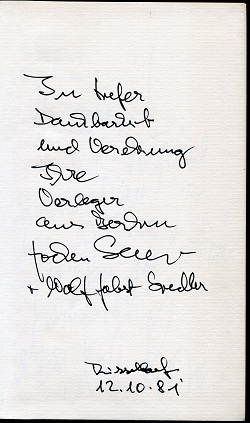 In tiefer
Dankbarkeit
und Verehrung
Ihre
Verleger
aus Berlin
Jochen Severin
+ Wolf Jobst Siedler
Düsseldorf
12.10.81